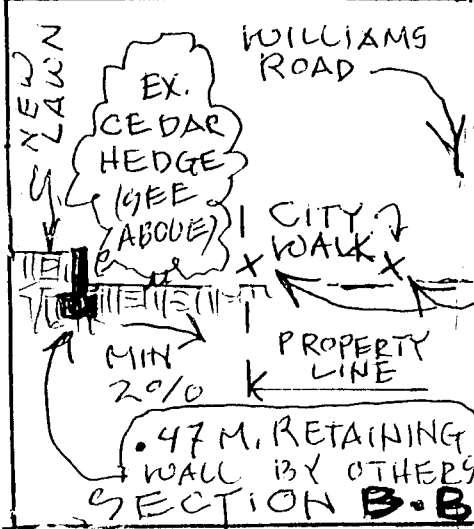 NEW
LAWN
EX.
CEDAR
HEDGE
(SEE
ABOVE)
WILLIAMS
ROAD
CITY
WALK
MIN
2%
PROPERTY
LINE
.47 M. RETAINING
WALL BY OTHERS
SECTION B.B